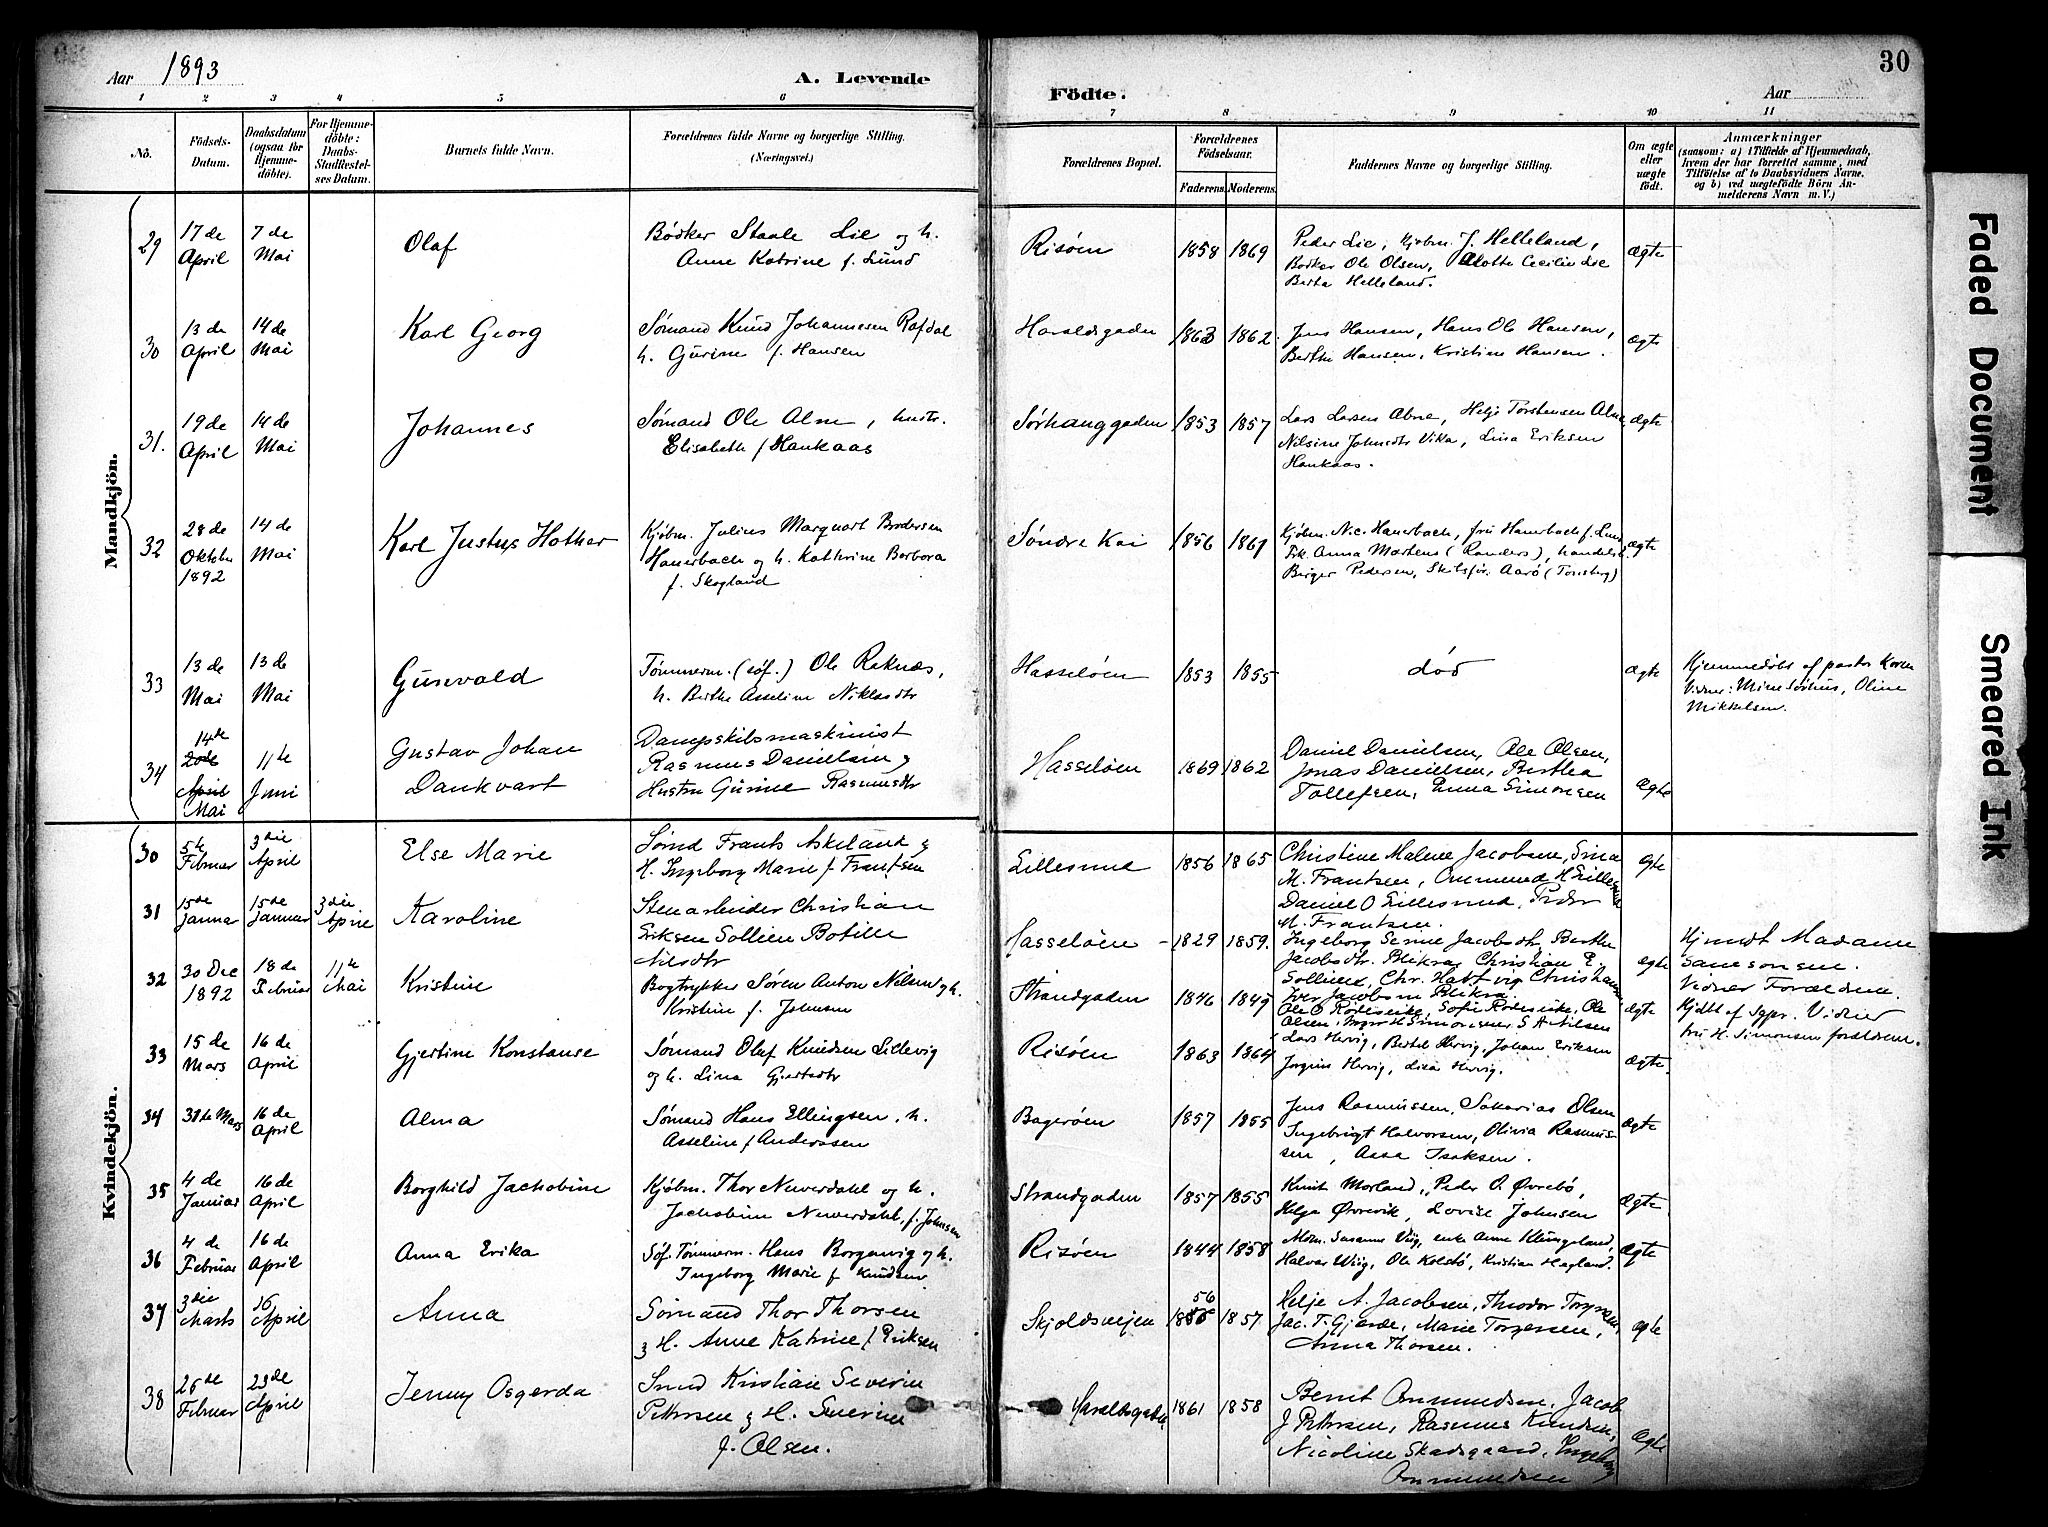 Aar 1893
A. Levende
Födte.
Aar
30
1 2 3 4 5 6 7 8 9 10 11
Nô.
Födsels-Datum.
Daabsdatum (ogsaa for Hjemme-döbte).
For Hjemme-döbte: Daabs-Stadfæstel-ses Datum.
Barnets fulde Navn.
Forældrenes fulde Navne og borgerlige Stilling. (Næringsvei.)
Forældrenes Bopæl.
Forældrenes Födselsaar.
Faderens. Moderens.
Faddernes Navne og borgerlige Stilling.
Om ægte eller uægte födt.
Anmærkninger
(saasom: a) i Tilfælde af Hjemmedaab,
hvem der har forrettet samme, med
Tilföielse af to Daabsvidners Navne,
og b) ved uægtefödte Börn An-
melderens Navn m. V.)
Mandkjön.
29 17 de April 7 de Mai Olaf
Bødker Staale Lie og h.
Anne Katrine f. Lund
Risøen 1858 1869
Peder Lie, Kjøbm. J. Helleland,
Bødker Ole Olsen, Lotte Cecilie Lie
Berta Helleland.
ægte
30 13 de April 14 de Mai Karl Georg
Sømand Knud Johannesen Rafdal
h. Gurine f. Hansen
Haraldsgaden 1863 1862
Jens Hansen, Hans Ole Hansen,
Berthe Hansen, Kristine Hansen.
ægte
31. 19 de April 14 de Mai Johannes
Sømand Ole Alne, hustr.
Elisabeth f Haukaas
Sørhauggaden 1853 1857
Lars Larsen Alne, Helje Torstensen Alne
Nilsine Johnsdtr Vika, Lina Eriksen
Haukaas.
ægte
32 28 de Oktbr 1892 14 de Mai Karl Justus Hother
Kjøbm. Julius Marquart Brodersen
Hauerbach og h. Kathrine Barbora
f. Skogland
Søndre Kai 1856 1861
Kjøbm. N.C. Hauerbach, fru Hauerbach f. Lund
Frk. Anna Martens (Randers), handelsb.
Birger Pedersen, Skibsfør. Aarø (Tønsberg)
ægte
33 13 de Mai 13 de Mai Gunvald
Tømmerm. (søf.) Ole Røknæs,
h. Berthe Asseline Niklasdtr
Hasseløen 1853 1855
død
ægte
Hjemmedøbt af pastor Koren
Vidner: Mine Sørhus, Oline
Mikkelsen.
34 14de 20de April Mai 11te Juni Gustav Johan
Dankvart
Dampskibsmaskinist
Rasmus Danielsen &
Hustru Gurine Rasmusdtr
Hasseløen 1869 1862
Daniel Danielsen, Ole Olsen,
Jonas Danielsen, Bertha
Tollefsen, Emma Simonsen
Ægte
Kvindekjön.
30 5te Februar 3die April Else Marie
Sømd Frants Askeland &
H. Ingeborg Marie f Frantsen
Lillesund 1856 1865
Christine Malene Jacobsen, Sina
M. Frantsen, Ommund H Lillesund
Daniel O Lillesund, Peder
M. Frantsen.
ægte
31 15de Januar 15de Januar 3die April Karoline
Stenarbeider Christian
Eriksen Sollien Botille
Nilsdtr
Hasseløen 1829 1859.
Ingeborg Serine Jacobsdtr, Berthe
Jacobsdtr. Blikra, Christian E.
Sollien, Chr. Hatvig Christiansen
Iver Jacobsen Blikra.
ægte
Hjemdt Madame
Samsonsen.
Vidner Forældrene.
32 30 Dec 1892 18 de Februar 11te Mai Kristine
Bogtrykker Søren Anton Nilsen og h.
Kristine f. Johnsen
Strandgaden 1846 1849
Ole O Rødesike, Sofie Rødesike, Ole
Olsen, Inger H Simonsen, S A Nilsen
ægte
Hjdbt af Sgpr. Vidner
fru H. Simonsen forældrene.
33 15 de Mars 16 de April Gjertine Konstanse
Sømand Olaf Knudsen Lillevig
og h. Lina Gjertsdtr
Risøen 1863 1864
Lars Hervig, Bertel Hervig, Johan Eriksen
Jorgine Hervig, Lisa Hervig.
ægte.
34 31te Mars 16 de April Alma
Sømand Hans Ellingsen, h.
Asseline f Anderssen
Bagerøen 1857 1855
Jens Rasmussen, Sakarias Olsen
Ingebrigt Halvorsen, Olivia Rasmus-
sen, Aasa Isaksen.
ægte
35 4 de Januar 16 de April Borghild Jachobine
Kjøbm. Thor Neverdahl og h.
Jachobine Neverdahl, f. Johnsen
Strandgaden 1857 1855
Knut Morland, Peder O. Øvrebø,
Helga Øvrevik, Lovise Johnsen
ægte
36 4 de Februar 16 de April Anna Erika
Søf. Tømmerm. Hans Borgenvig og h.
Ingeborg Marie f Knudsen
Risøen 1844 1858
Mdm. Susanne Viig, enke Anne Klungeland,
Halvar Wiig, Ole Kolstø, Kristian Hagland.
ægte
37 3die Marts 16 April Anna
Sømand Thor Thorsen
& H. Anne Katrine f Eriksen
Skjoldsveien 56 1857
Helje A. Jacobsen, Theodor Torgersen,
Jac. T. Gjerde, Marie Torgersen,
Anna Thorsen.
ægte
38 26de Februar 23de April Jenny Osgerda
Smed Kristian Severin
Pettersen & H. Severine
f. Olsen.
Haraldsgaden 1861 1858
Bernt Ommundsen, Jacob
J Pettersen, Rasmus Knudsen,
Nicoline Skadsgaard, Ingeborg
Ommundsen
ægte
Faded Document
Smeared Ink